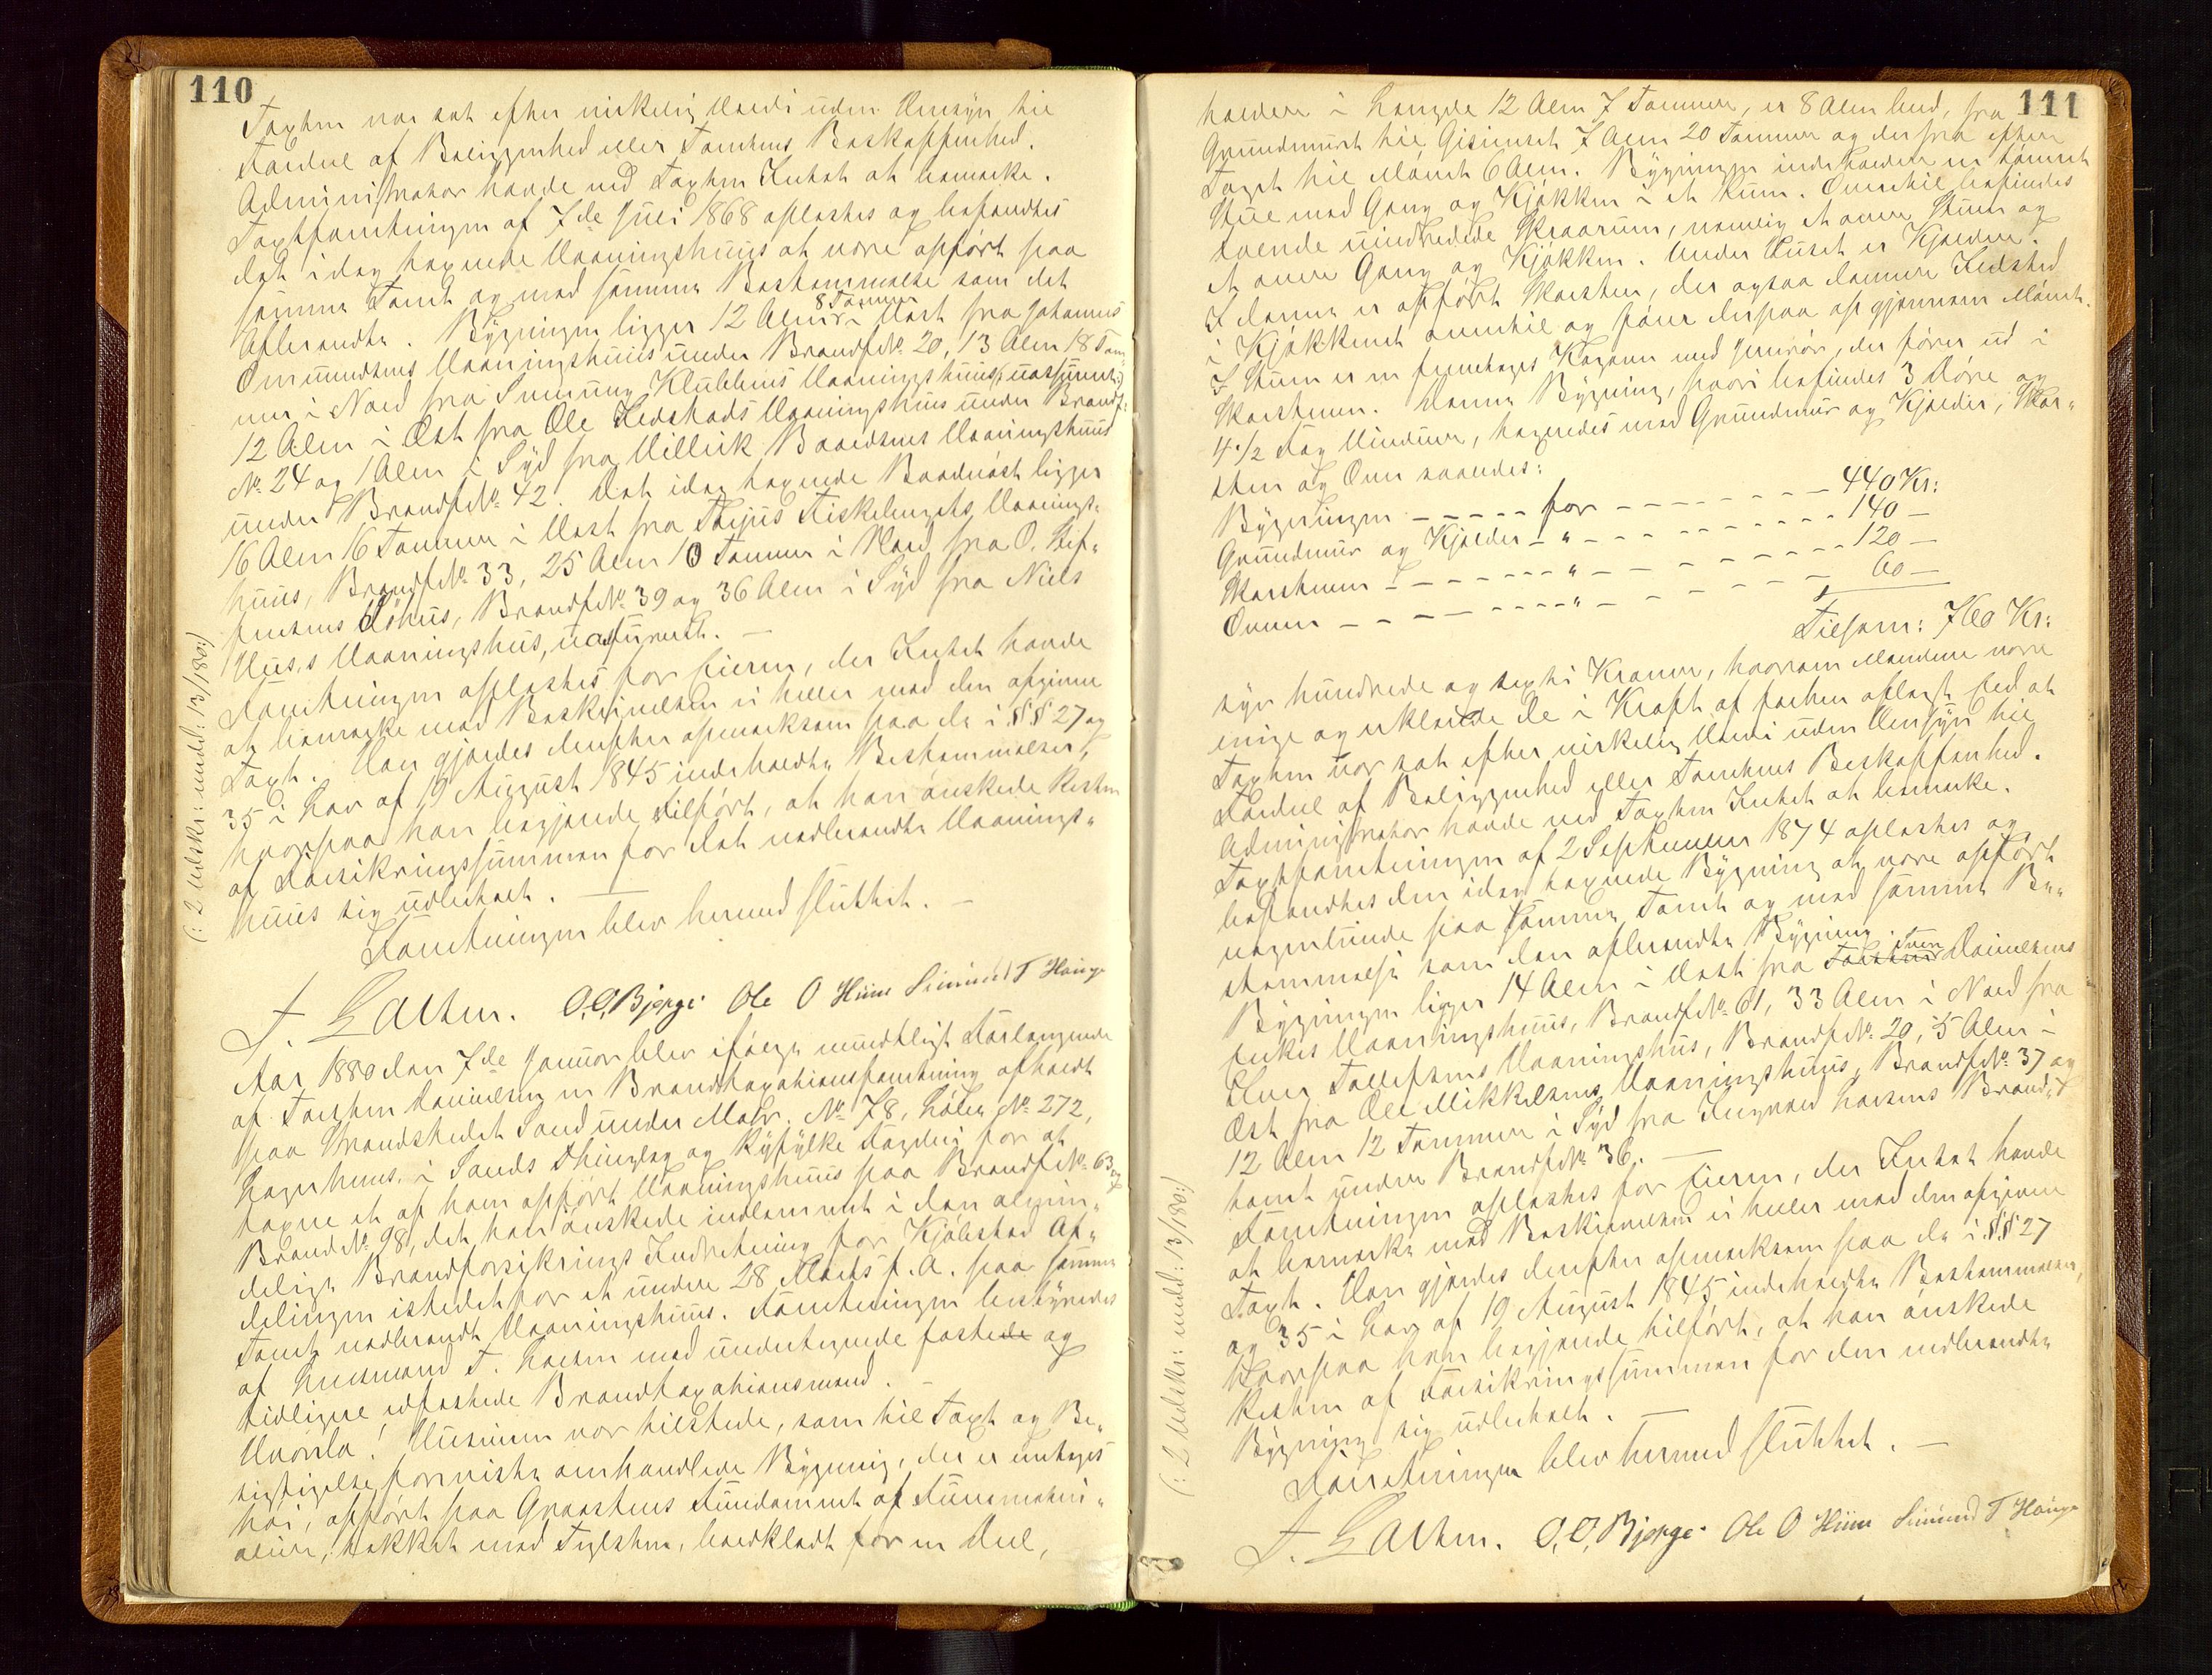 110
Taxten var sat efter virkelig Værdi uden Hensyn til
Fordeel af Beliggenhed eller Tomtens Beskaffenhed.
Administrator havde ved Taxten Intet at bemærke.
Taxtforretningen af 7de Juli 1868 oplæstes og befandtes
det idag taxerede Vaaningshuus at være opført paa
samme Tomt og med samme Bestemmelse som det
Afbrændte. Bygningen ligger 12 Alen 8 Tommer i Vest fra Johannes
Omundsens Vaaningshuus under Brandf. No 20, 13 Alen 18 Tom-
mer i Nord fra Klubbens Vaaningshuus (: uassureret :)
12 Alen i Øst fra Ole Hedstads Vaaningshus under Brandf.
No 24 og 1 Alen i Syd fra Baardsens Vaaningshuus
under Brandf. No 42. Det idag taxerede Baadnøst ligger
16 Alen 16 Tommer i Vest fra Vaanings-
huus, Brandf. No 33, 25 Alen 10 Tommer i Nord fra O. Tif-
Søhus, Brandf. No 39 og 36 Alen i Syd fra Niels
Vaaningshus, uassureret. —
Forretningen oplæstes for Eieren, der Intet havde
at bemærke mod Beskrivelsen ei heller mod den afgivne
Taxt. Han gjordes derefter opmærksom paa de i §§ 27 og
35 i Lov af 19 August 1845 indeholdte Bestemmelser,
hvorpaa han begjærede tilført, at han ønskede Resten
af Forsikringssummen for det nedbrændte Vaanings-
huus sig udbetalt. —
Forretningen blev hermed sluttet. —
T. Larsen. O. O. Bjerge. Ole O Hiim Simund T Houge
(: 2 Udskr: medd. 13/1 80 :)
Aar 1880 den 7de Januar blev ifølge mundtligt Forlangende
af Torsten Danielsen en Brandtaxationsforretning afholdt
paa Strandstedet Sand under Matr. No 78, Løbe No 272,
i Sands Thinglag og Ryfylke Fogderi for at
taxere et af ham opført Vaaningshuus paa Brandf. No 63 og
Brand No 98, det han ønskede indlemmet i den almin-
delige Brandforsikrings Indretning for Kjøbstad Af-
delingen istedet for et under 28 Marts f. A. paa samme
Tomt nedbrændt Vaaningshuus. Forretningen bestyredes
af Lensmand T. Larsen med undertegnede faste og
tidligere edfæstede Brandtaxationsmænd. —
Huseieren var tilstede, som til Taxt og Be-
sigtigelse foreviste omhandlede Bygning, der er
høi, opført paa Graasteens Fundament af
tækket med Teglsten, bordklædt for en Deel,
111
holder i Længde 12 Alen 7 Tommer, er 8 Alen bred, fra
Grundmuret til Gesimset 7 Alen 20 Tommer og derfra efter
Taget til Mønet 6 Alen. Bygningen indeholder en tømret
Stue med Gang og Kjøkken i et Rum. Oventil befindes
tvende uindredede Skraarum, nemlig et over Stuen og
et over Gang og Kjøkken. Under Huset er Kjælder.
I denne er opført Skorsten, der ogsaa danner Ildsted
i Kjøkkenet ovenfor og fører derpaa op gjennem Mønet.
I Stuen er en Kogeovn med Jernrør, der fører ud i
Skorstenen. Denne Bygning, hvori befindes 3 Døre og
4 1/2 Fag Vinduer, taxeredes med Grundmur og Kjælder, Skor-
sten og Ovn saaledes:
Bygningen — — — — for — — — — — — 440 Kr:
Grundmur og Kjælder — " — — — — — — 140 —
Skorstenen — — — — — " — — — — — — 120 —
Ovnen — — — — — — " — — — — — 60 —
Tilsam: 760 Kr:
syv hundrede og sexti Kroner, hvorom Mændene vare
enige og erklærede de i Kraft af forhen aflagt Eed at
Taxten var sat efter virkelig Værdi uden Hensyn til
Fordeel af Beliggenhed eller Tomtens Beskaffenhed.
Administrator havde ved Taxten Intet at bemærke.
Taxtforretningen af 2 September 1874 oplæstes og
befandtes den idag taxerede Bygning at være opført
nogenlunde paa samme Tomt og med samme Be-
stemmelse som den afbrændte Bygning.
Bygningen ligger 14 Alen i Vest fra Sven Danielsens
Enkes Vaaningshuus, Brandf. No 61, 33 Alen i Nord fra
Elias Tollefsens Vaaningshus, Brandf. No 20, 5 Alen i
Øst fra Ole Mikkelsens Vaaningshuus, Brandf. No 37 og
12 Alen 12 Tommer i Syd fra Ingvald Larsens Brand-
tomt under Brandf. No 36. —
Forretningen oplæstes for Eieren, der Intet havde
at bemærke mod Beskrivelsen ei heller mod den afgivne
Taxt. Han gjordes derefter opmærksom paa de i §§ 27
og 35 i Lov af 19 August 1845 indeholdte Bestemmelser,
hvorpaa han begjærede tilført, at han ønskede
Resten af Forsikringssummen for den nedbrændte
Bygning sig udbetalt. —
Forretningen blev hermed sluttet. —
T. Larsen. O. O. Bjerge. Ole O Hiim Simund T Houge
(: 2 Udskr: medd: 13/1 80 :)